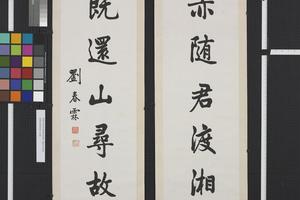 亦随君渡湘
既還山尋故
劉春霖